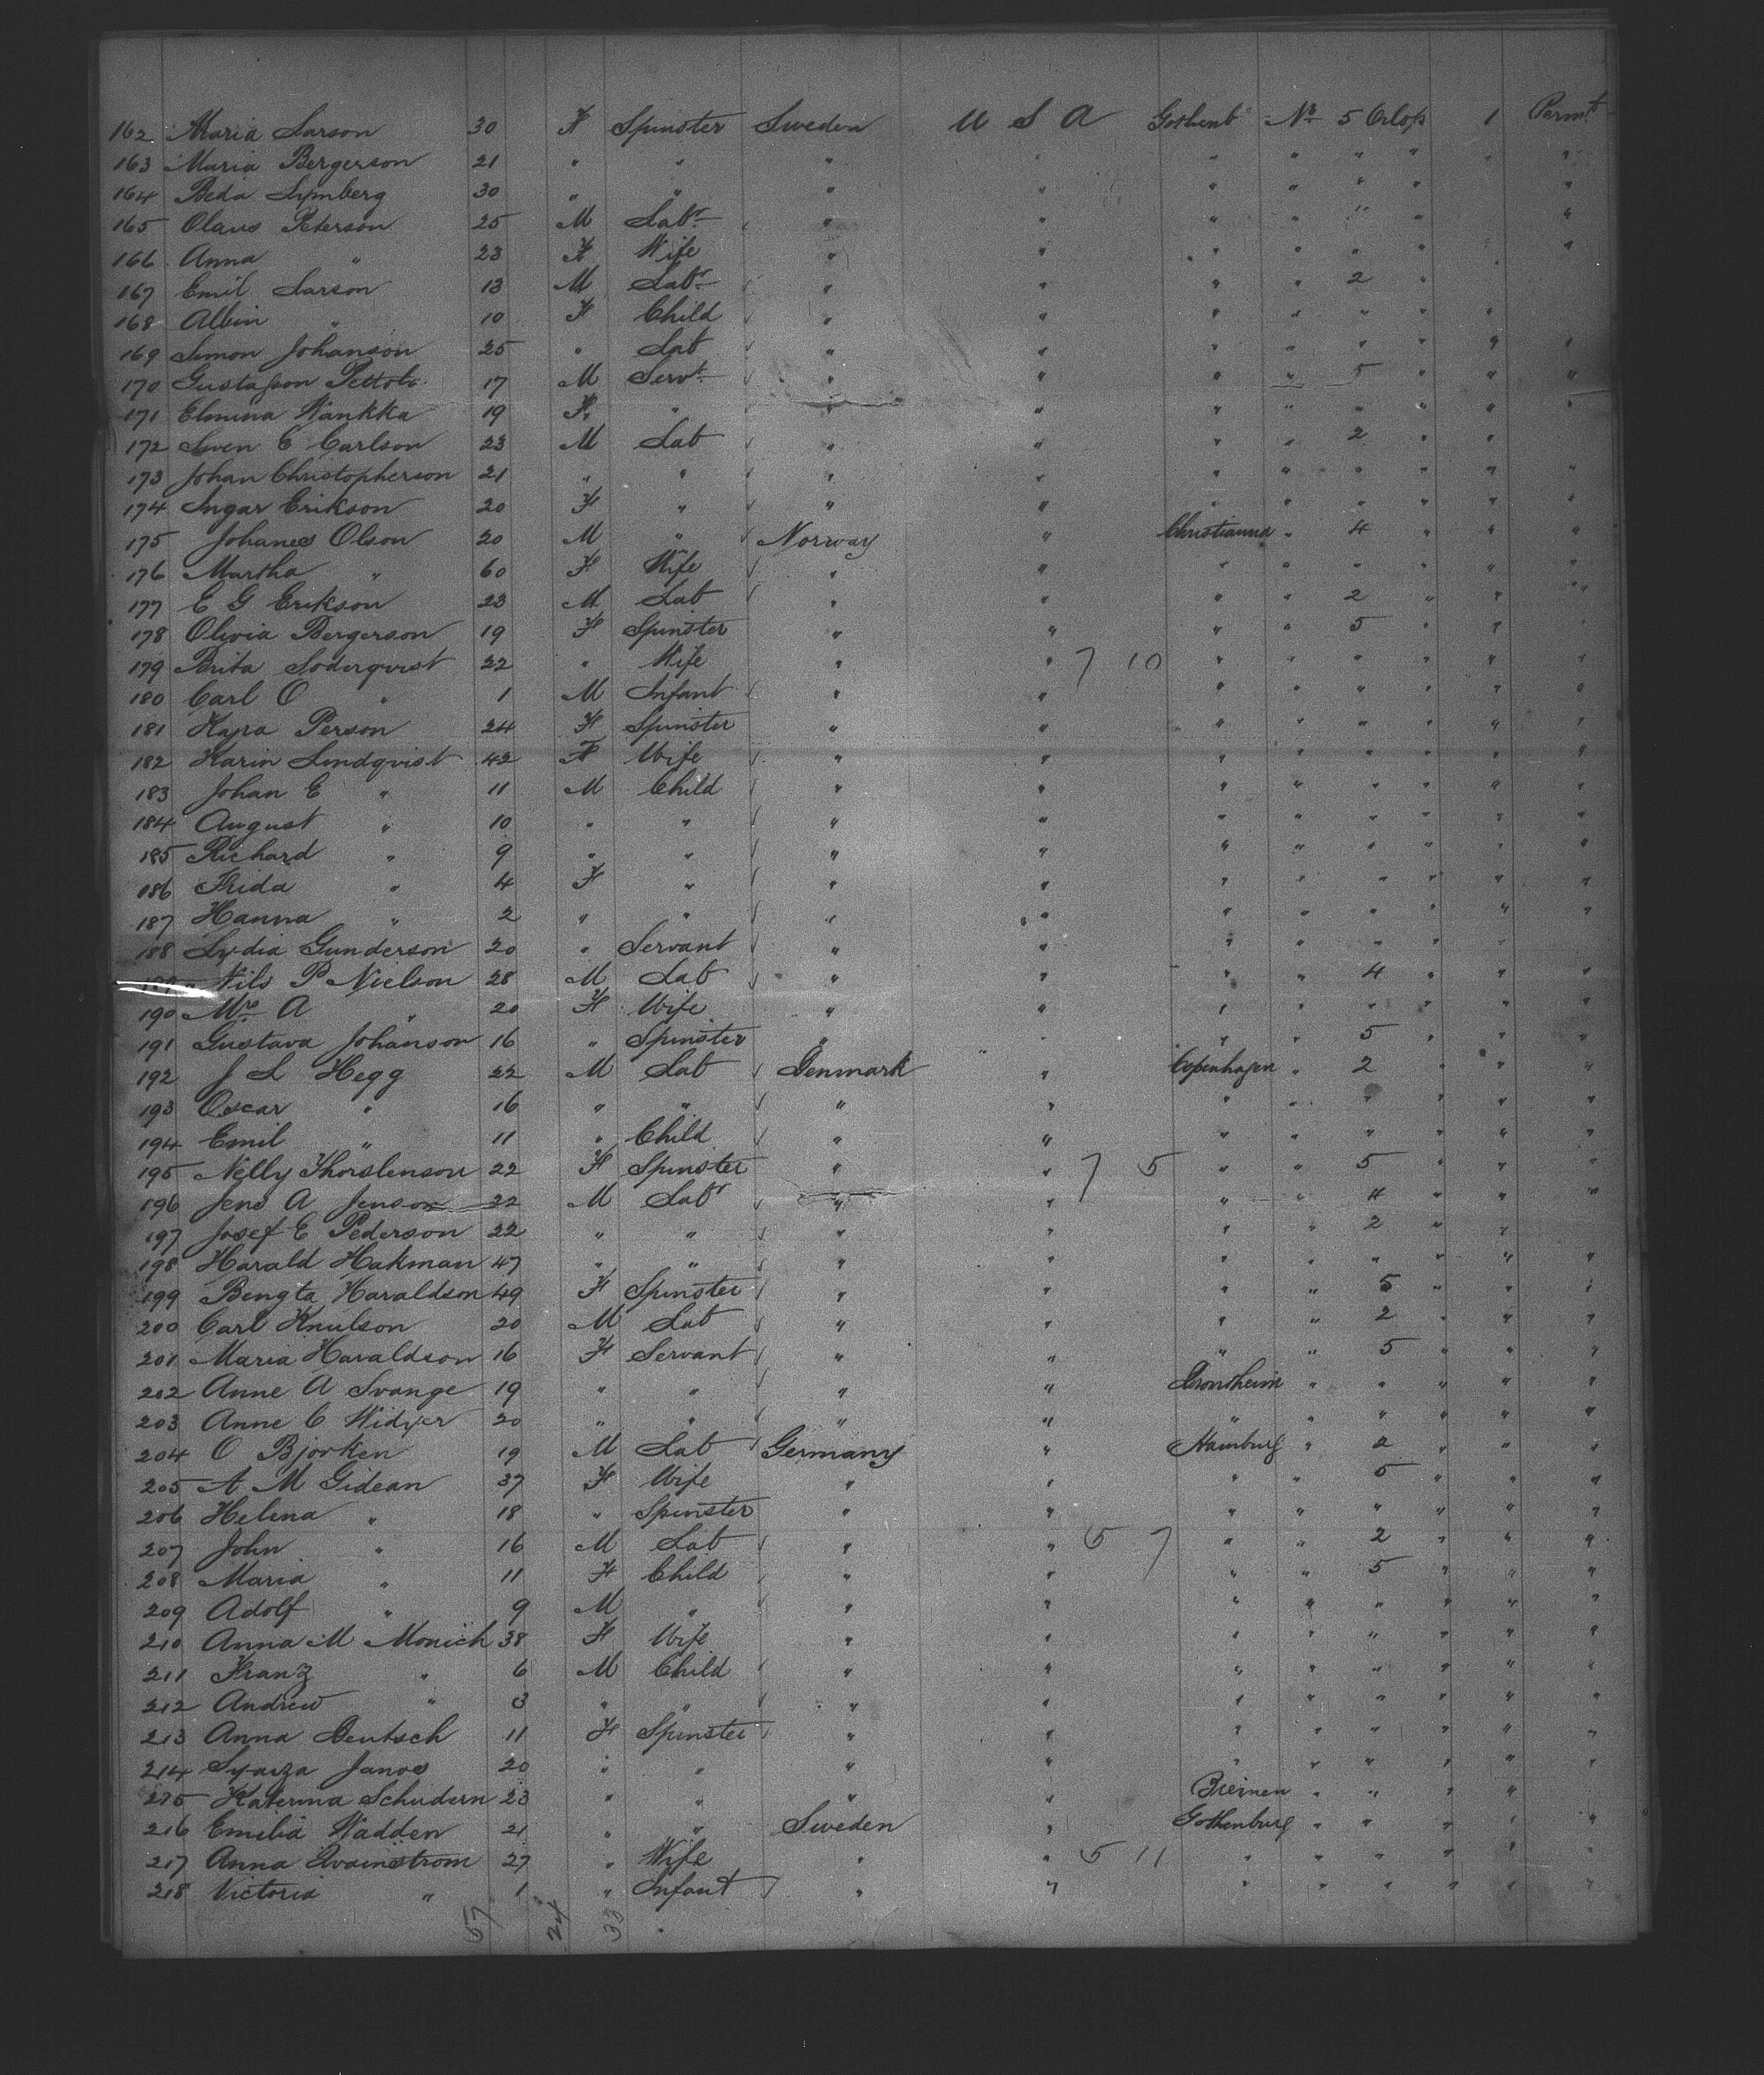 162 Maria Larson 30 F Spinster Sweden U S A Gothenb No 5 Orlop 1 Permt
163 Maria Bergerson 21 " " " " " " " " " "
164 Beda 30 " " " " " " " " "
165 Olaus Peterson 25 M Labr " " " " " " "
166 Anna " 23 F Wife " " " " " " "
167 Emil Larson 13 M Labr " " " " 2 "
168 Albin " 10 F Child " " " " " " "
169 Simon Johanson 25 " Lab " " " " " " " "
170 Gustafson 17 M Servt " " " " 5 " " "
171 Elmina Wankka 19 F. " " " " " " " " "
172 Swen E Carlson 23 M Lab " " " " 2 " "
173 Johan Christopherson 21 " " " " " " " " " "
174 Ingar Erikson 20 F " " " " " " " " "
175 Johanes Olson 20 M " Norway " Christianna " 4 " " "
176 Martha " 60 F Wife " " " " " " " "
177 E G Erikson 23 M Lab " " " " 2 " " "
178 Olivia Bergerson 19 F Spinster " " " " 5 " " "
179 Brita Soderqvist 22 " Wife " " 7 10 " " " " " "
180 Carl O " 1 M Infant " " " " " " " "
181 Person 24 F Spinster " " " " " " " "
182 Karin Lindqvist 42 F Wife " " " " " " " "
183 Johan E " 11 M Child " " " " " " " "
184 August " 10 " " " " " " " " " "
185 Richard " 9 " " " " " " " " " "
186 Frida " 4 F " " " " " " " " "
187 Hanna " 2 " " " " " " " " " "
188 Lydia Gunderson 20 " Servant " " " " " " "
Nils P Nielson 28 M Lab " " " " 4 " " "
190 Mrs A " 20 F Wife " " " " " " " "
191 Gustava Johanson 16 " Spinster " " " " 5 " " "
192 J L Hegg 22 M Lab Denmark " Copenhagen " 2 " " "
193 Oscar " 16 " " " " " " " " " "
194 Emil " 11 " Child " " " " " " " "
195 Nelly Thorslenson 22 F Spinster " " 7 5 " " 5 " " "
196 Jens A Jenson 22 M Labr " " " " 4 " " "
197 Josef E Pederson 22 " " " " " " 2 " "
198 Harald Hakman 47 " " " " " " " " " "
199 Bengta Haraldson 49 F Spinster " " " " 5 " " "
200 Carl Knulson 20 M Lab " " " " 2 " " "
201 Maria Haraldson 16 F Servant " " " " 5 " " "
202 Anne A Svange 19 " " " " Dronsheim " " " " "
203 Anne C 20 " " " " " " " " " "
204 O Bjorken 19 M Lab Germany " Hamburg " 2 " " "
205 A M Gidean 37 F Wife " " " " 5 " " "
206 Helena " 18 " Spinster " " " " " " " "
207 John " 16 M Lab " " 5 7 " " 2 " " "
208 Maria " 11 F Child " " " " 5 " " "
209 Adolf " 9 M " " " " " " " " "
210 Anna M Monich 38 F Wife " " " " " " " "
211 Franz " 6 M Child " " " " " " " "
212 Andrew " 3 " " " " " " " " " "
213 Anna Deutsch 11 F Spinster " " " " " " " "
214 Janos 20 " " " " " " " " " "
215 Katerina Schudern 23 " " " " Bremen " " " "
216 Emilia Wadden 21 " " Sweden " Gothenburg " " " " "
217 Anna 27 " Wife " " 5 11 " " " " " "
218 Victoria " 1 " Infant " " " " " " " "
57 24 33